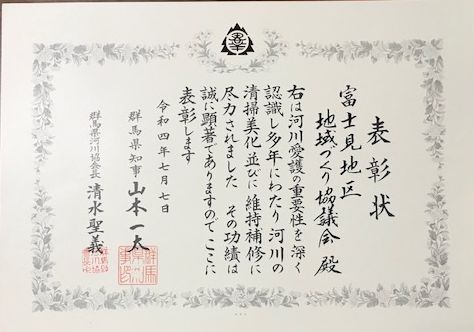 表彰状
富士見地区
地域づくり協議会 殿
右は河川愛護の重要性を深く
認識し多年にわたり河川の
清掃美化並びに維持補修に
尽力されました その功績は
誠に顕著でありますのでここに
表彰します
令和四年七月七日
群馬県知事 山本一太
群馬県河川協会長 清水聖義